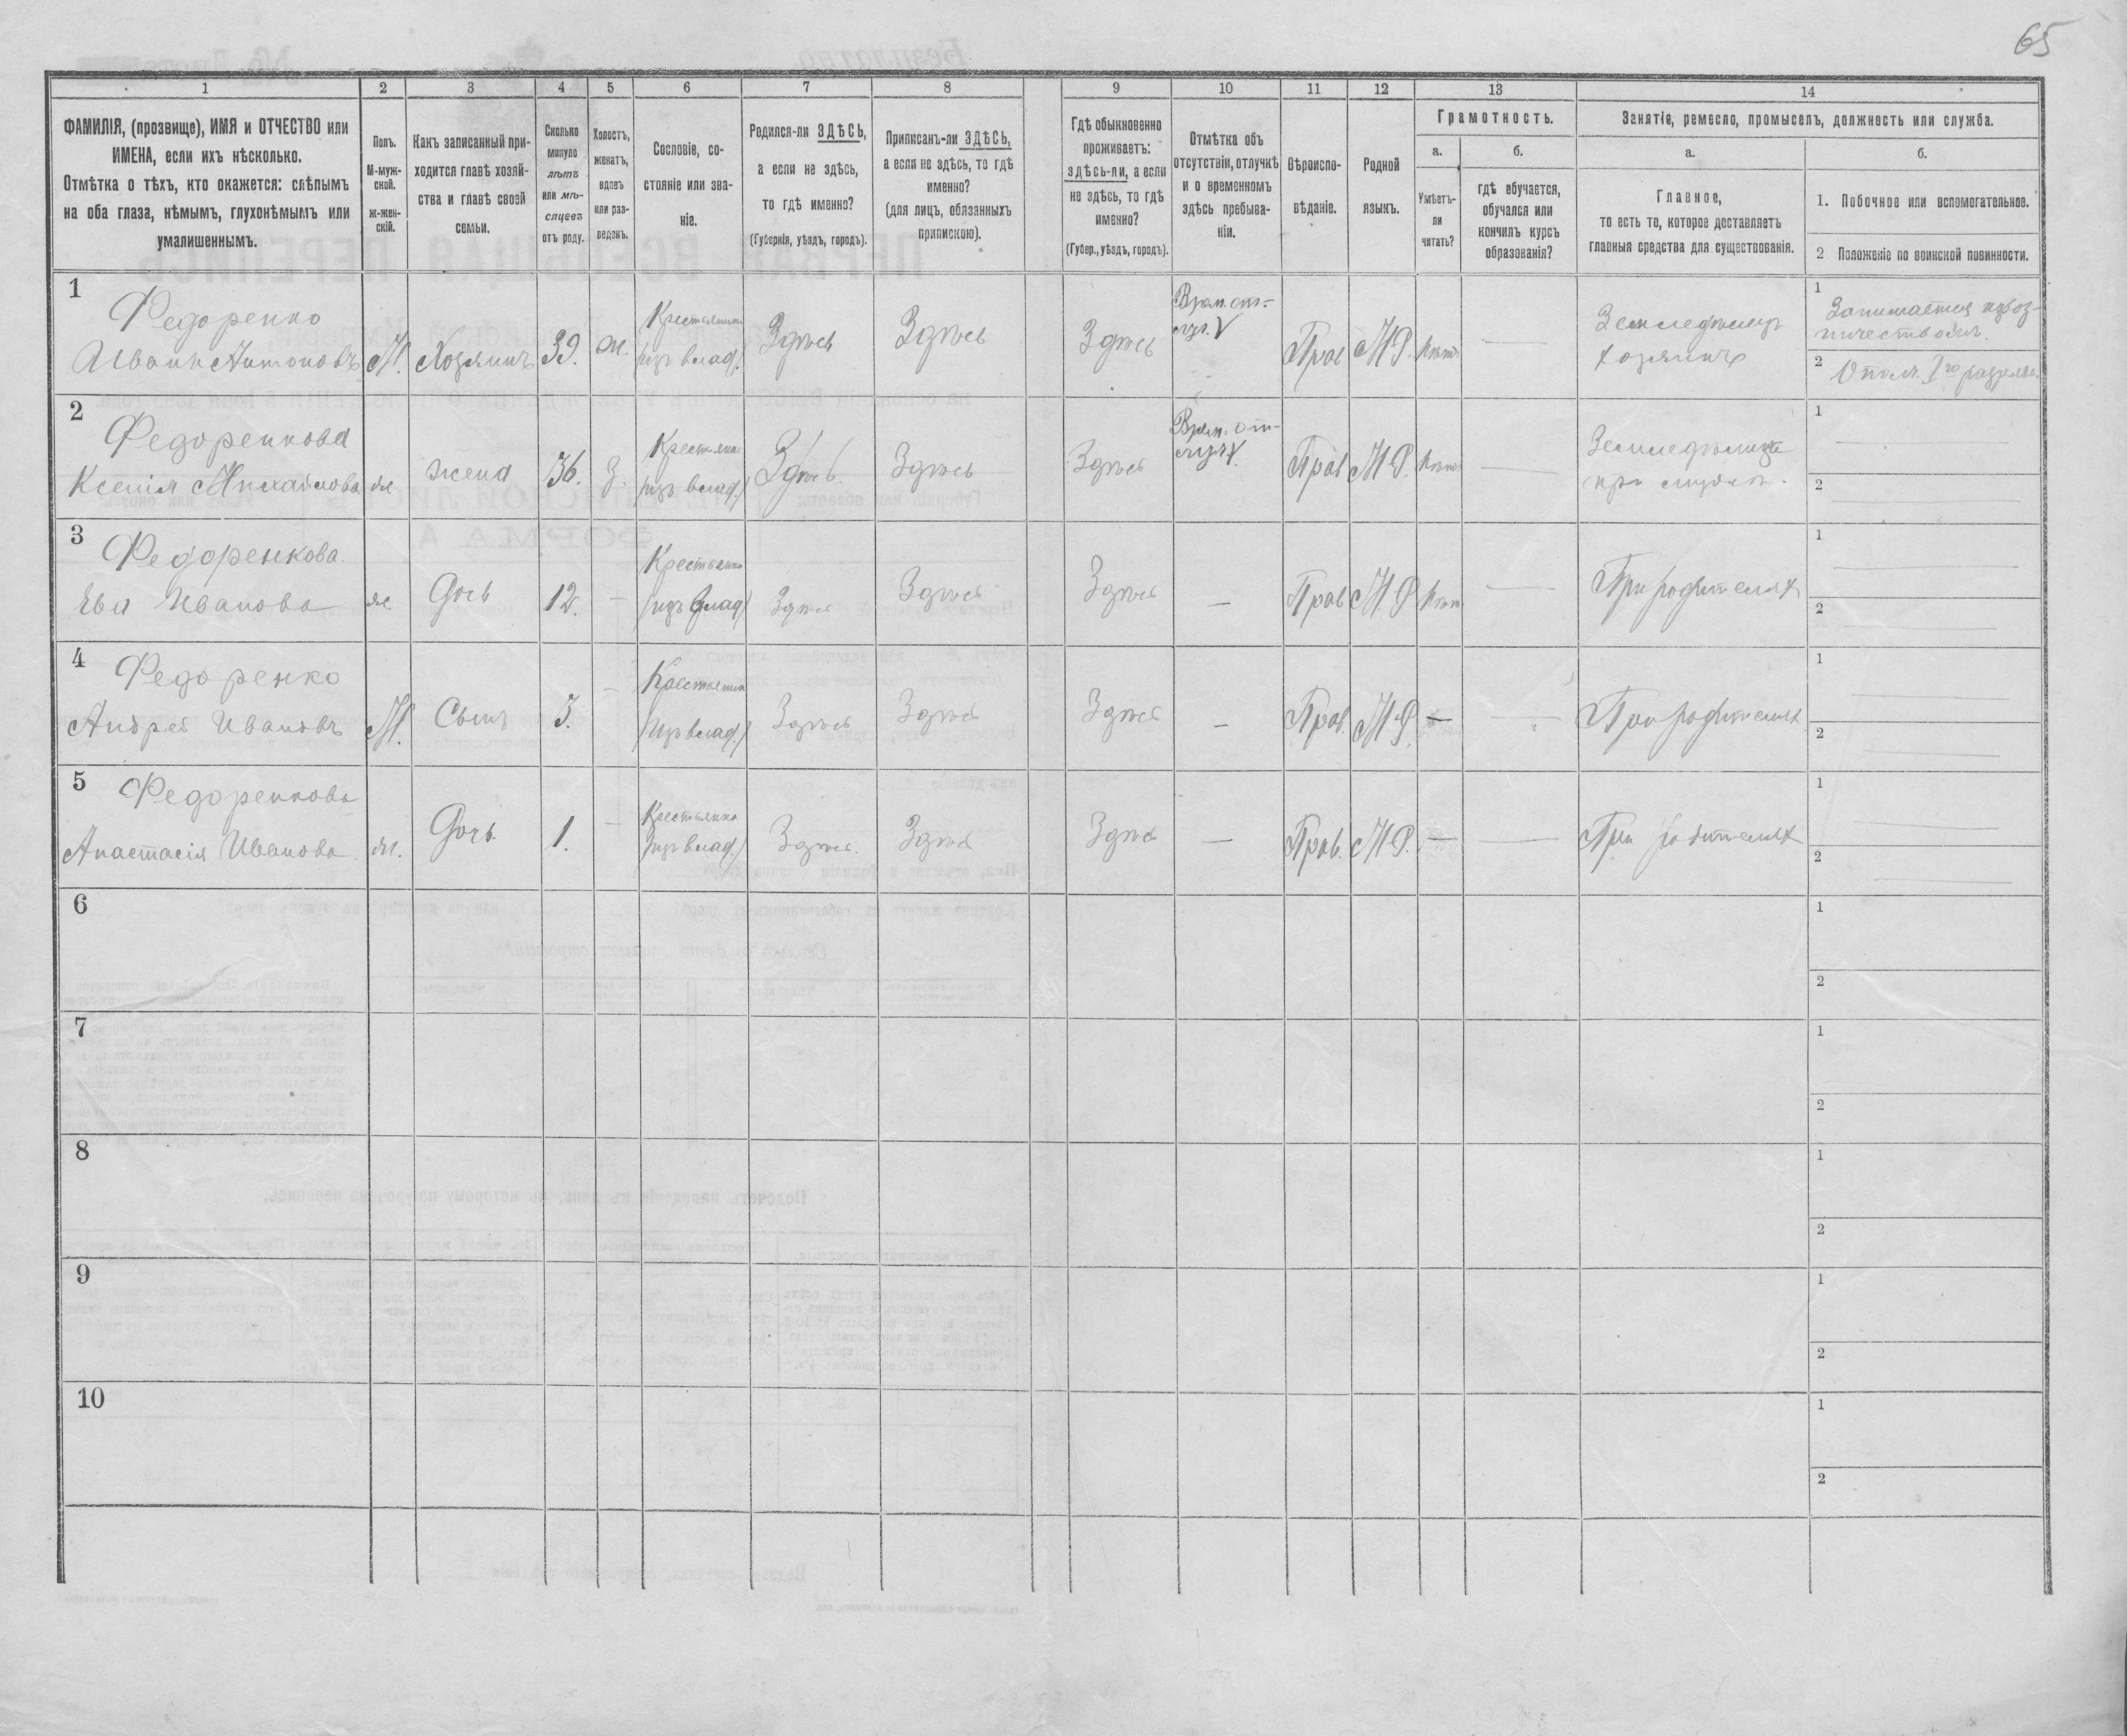 65
1 2 3 4 5 6 7 8 9 10 11 12 13 14
ФАМИЛІЯ, (прозвище), ИМЯ и ОТЧЕСТВО или
ИМЕНА, если ихъ нѣсколько.
Отмѣтка о тѣхъ, кто окажется: слѣпымъ
на оба глаза, нѣмымъ, глухонѣмымъ или
умалишеннымъ.
Полъ.
М-муж-
ской.
ж-жен-
скій.
Какъ записанный при-
ходится главѣ хозяй-
ства и главѣ своей
семьи.
Сколько
минуло
лѣтъ
или мѣ-
сяцевъ
отъ роду.
Холостъ,
женатъ,
вдовъ
или раз-
веденъ.
Сословіе, со-
стояніе или зва-
ніе.
Родился-ли ЗДѢСЬ,
а если не здѣсь,
то гдѣ именно?
(Губернія, уѣздъ, городъ).
Приписанъ-ли ЗДѢСЬ,
а если не здѣсь, то гдѣ
именно?
(для лицъ, обязанныхъ
припискою).
Гдѣ обыкновенно
проживаетъ:
здѣсь-ли, а если
не здѣсь, то гдѣ
именно?
(Губер., уѣздъ, городъ).
Отмѣтка объ
отсутствіи, отлучкѣ
и о временномъ
здѣсь пребыва-
ніи.
Вѣроиспо-
вѣданіе.
Родной
языкъ.
Грамотность.
а.
Умѣетъ-
ли
читать?
б.
гдѣ обучается,
обучался или
кончилъ курсъ
образованія?
Занятіе, ремесло, промыселъ, должность или служба.
а.
Главное,
то есть то, которое доставляетъ
главныя средства для существованія.
б.
1. Побочное или вспомогательное.
2 Положеніе по воинской повинности.
1
Федоренко
Иванъ Антоновъ
М.
Хозяинъ
39.
ж.
Крестьянинъ
(изъ влад.)
Здѣсь
Здѣсь
Здѣсь
Врем. от-
луч. V
Прав
М.Р.
нѣтъ
—
Земледѣлецъ
хозяинъ
1 Занимается извоз-
ничествомъ.
2 Опол. I го разряда.
2
Федоренкова
Ксенія Михайлова
ж
жена
36.
З.
Крестьянка
(изъ влад.)
Здѣсь
Здѣсь
Здѣсь
Врем. от-
луч V.
Прав
М.Р.
нѣтъ
—
Земледѣлица
при мужѣ.
1 —
2 —
3
Федоренкова.
Ева Иванова
ж
Дочь
12.
—
Крестьянка
(изъ влад)
Здѣсь
Здѣсь
Здѣсь
—
Прав
М.Р
нѣтъ
—
При родителяхъ
1 —
2 —
4
Федоренко
Андрей Ивановъ
М.
Сынъ
3.
—
Крестьянинъ
(изъ влад.)
Здѣсь
Здѣсь
Здѣсь
—
Прав.
М.Р.
—
—
При родителяхъ
1 —
2 —
5
Федоренкова
Анастасія Иванова.
ж.
Дочь.
1.
—
Крестьянка
(изъ влад.)
Здѣсь.
Здѣсь
Здѣсь
—
Прав.
М.Р.
—
—
При родителяхъ
1 —
2 —
6
1
2
7
1
2
8
1
2
9
1
2
10
1
2